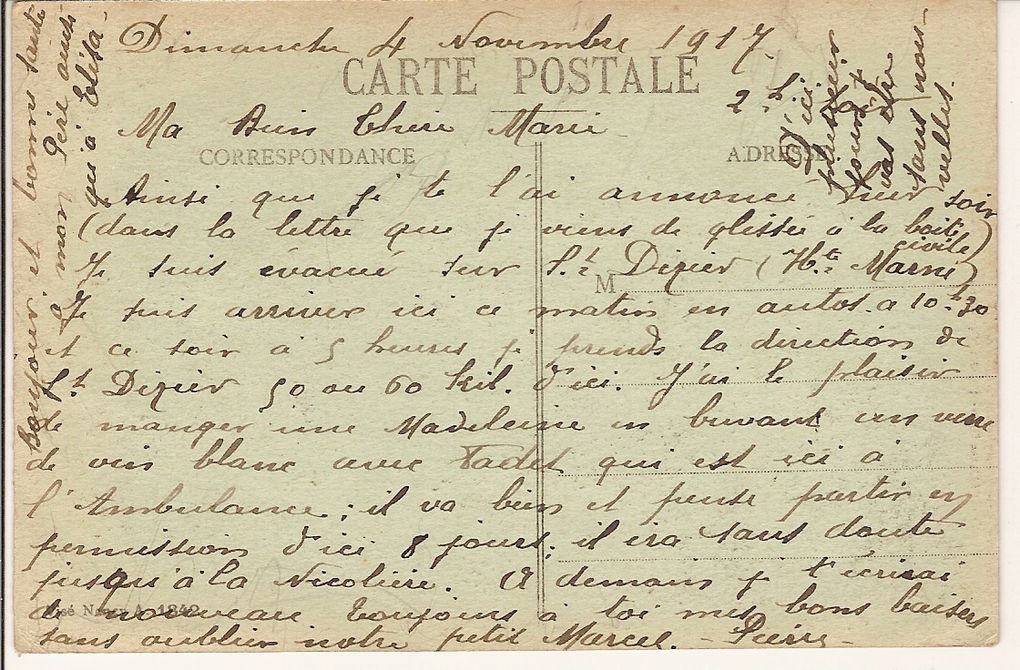 Dimanche 4 Novembre 1917
CARTE POSTALE
2 h
Ma Bien Chère Marie
CORRESPONDANCE
ADRESSE
Ainsi que je te l'ai annoncé hier soir
(dans la lettre que je viens de glissée à la boite civile)
Je suis évacué sur St Dizier (Hte Marne)
M
Je suis arriver ici ce matin en autos à 10h30
et ce soir à 5 heures je prends la direction de
St Dizier 50 ou 60 kil. d'ici. J'ai le plaisir
de manger une Madeleine en buvant un verre
de vin blanc avec Tadet qui est ici à
l'Ambulance ; il va bien et pense partir en
permission d'ici 8 jours ; il ira sans doute
jusqu'à la Nicolière. A demain je t'écrirai
de nouveau toujours à toi mes bons baisers
sans oublier notre petit Marcel - Pierre -
Nancy A. 1842
bonjour et bonne santé
à mon Père ainsi
qui à Elisa -
D'ici
plusieurs
jours
vas être
sans nou-
velles.